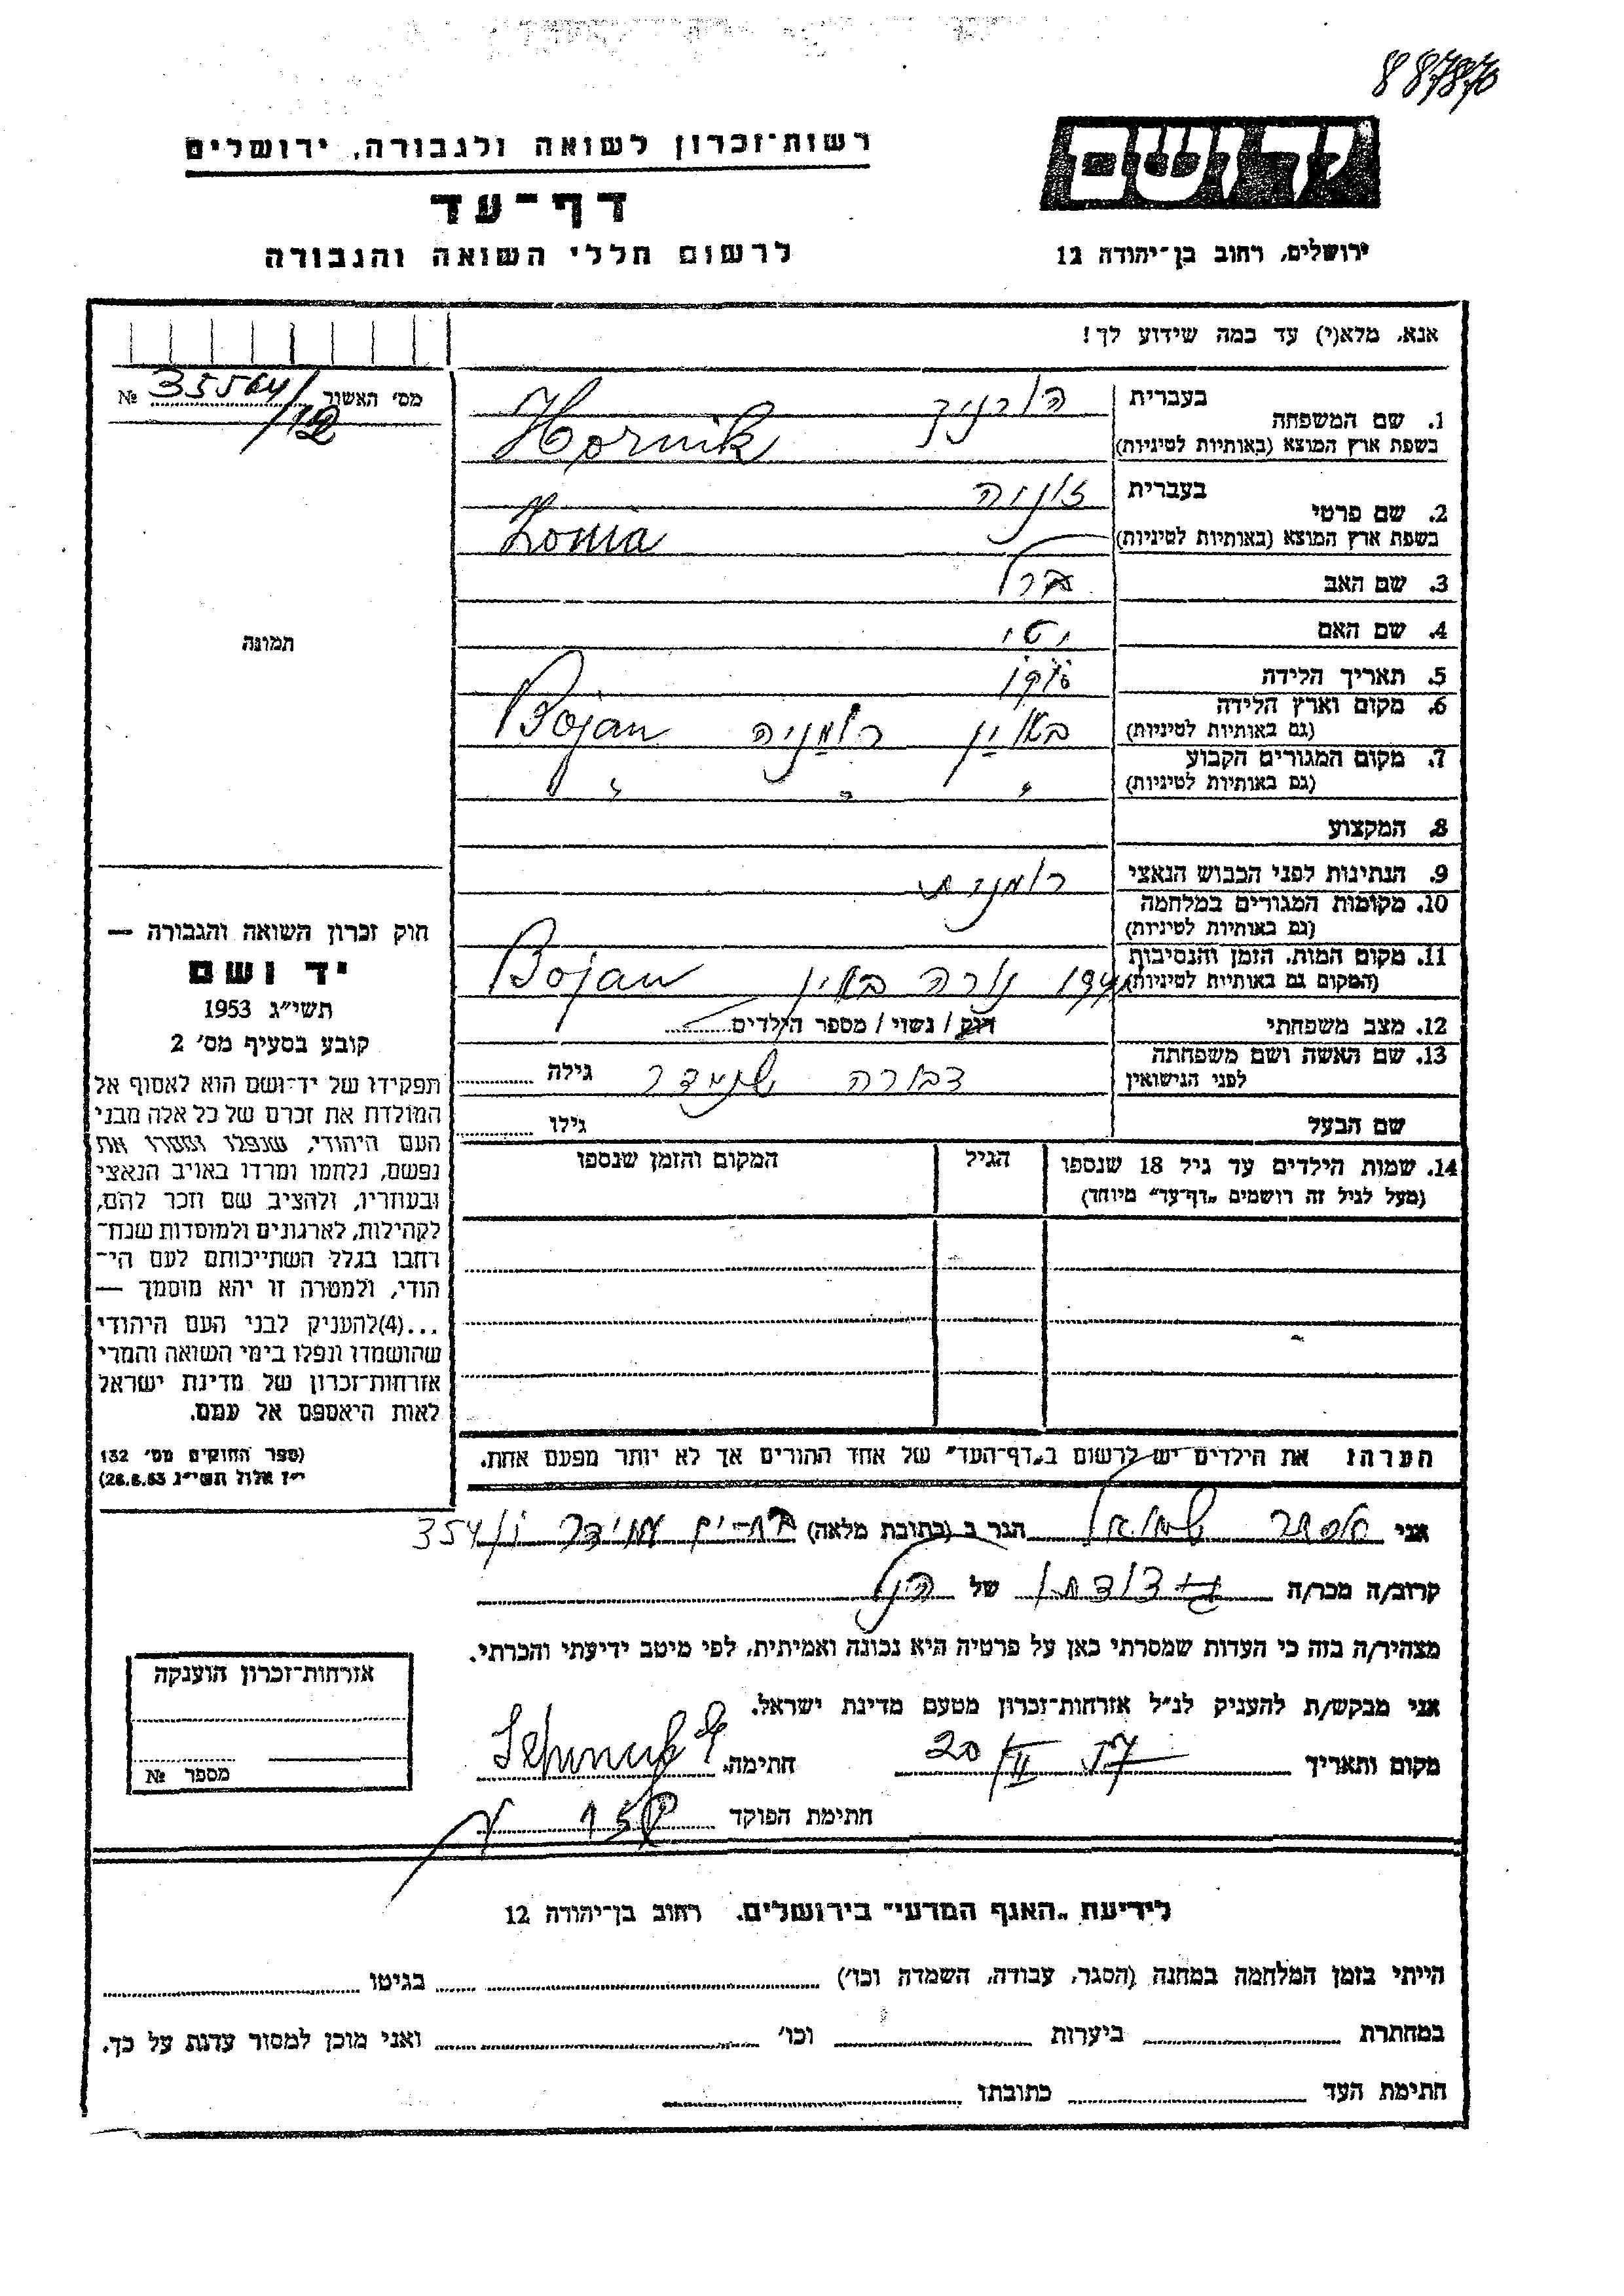 887870
רשות-זכרון לשואה ולגבורה, ירושלים
יד ושם
דף-עד
לרשום חללי השואה והגבורה
ירושלים, רחוב בן-יהודה 12
אנא, מלא(י) עד כמה שידוע לך!
מס' האשור 35564/ №
1. שם המשפחה בעברית הורניק
בשפת ארץ המוצא (באותיות לטיניות) Hornik
2. שם פרטי בעברית זוניה
בשפת ארץ המוצא (באותיות לטיניות) Zonia
3. שם האב ברל
4. שם האם יטי
5. תאריך הלידה
6. מקום וארץ הלידה (גם באותיות לטיניות) באין רומניה Bojan
7. מקום המגורים הקבוע (גם באותיות לטיניות) " " "
8. המקצוע
9. הנתינות לפני הכבוש הנאצי רומנית
10. מקומות המגורים במלחמה (גם באותיות לטיניות)
11. מקום המות, הזמן והנסיבות (המקום גם באותיות לטיניות) נורה באין Bojan
12. מצב משפחתי רווק / נשוי / מספר הילדים
13. שם האשה ושם משפחתה לפני הנישואין דבורה שנידר גילה
שם הבעל גילו
14. שמות הילדים עד גיל 18 שנספו
(מעל לגיל זה רושמים „דף-עד" מיוחד)
הגיל
המקום והזמן שנספו
תמונה
חוק זכרון השואה והגבורה —
יד ושם
תשי"ג 1953
קובע בסעיף מס' 2
תפקידו של יד-ושם הוא לאסוף אל
המולדת את זכרם של כל אלה מבני
העם היהודי, שנפלו ומסרו את
נפשם, נלחמו ומרדו באויב הנאצי
ובעוזריו, ולהציב שם וזכר להם,
לקהילות, לארגונים ולמוסדות שנח-
רחבו בגלל השתייכותם לעם הי-
הודי, ולמטרה זו יהא מוסמך —
...(4)להעניק לבני העם היהודי
שהושמדו ונפלו בימי השואה והמרי
אזרחות-זכרון של מדינת ישראל
לאות היאספם אל עמם.
(ספר החוקים מס' 132
י"ז אלול תשי"ג 28.8.53)
הערה: את הילדים יש לרשום ב„דף-העד" של אחד ההורים אך לא יותר מפעם אחת.
אני שמואל הגר ב (כתובת מלאה) 354/
קרוב/ה מכר/ה של הנ"ל
מצהיר/ה בזה כי העדות שמסרתי כאן על פרטיה היא נכונה ואמיתית, לפי מיטב ידיעתי והכרתי.
אני מבקש/ת להעניק לנ"ל אזרחות-זכרון מטעם מדינת ישראל.
מקום ותאריך 20/II 57 חתימה
חתימת הפוקד
אזרחות-זכרון הוענקה
מספר №
לידיעת „האגף המדעי" בירושלים, רחוב בן-יהודה 12
הייתי בזמן המלחמה במחנה (הסגר, עבודה, השמדה וכו') בגיטו
במחתרת ביערות וכו' ואני מוכן למסור עדות על כך.
חתימת העד כתובתו